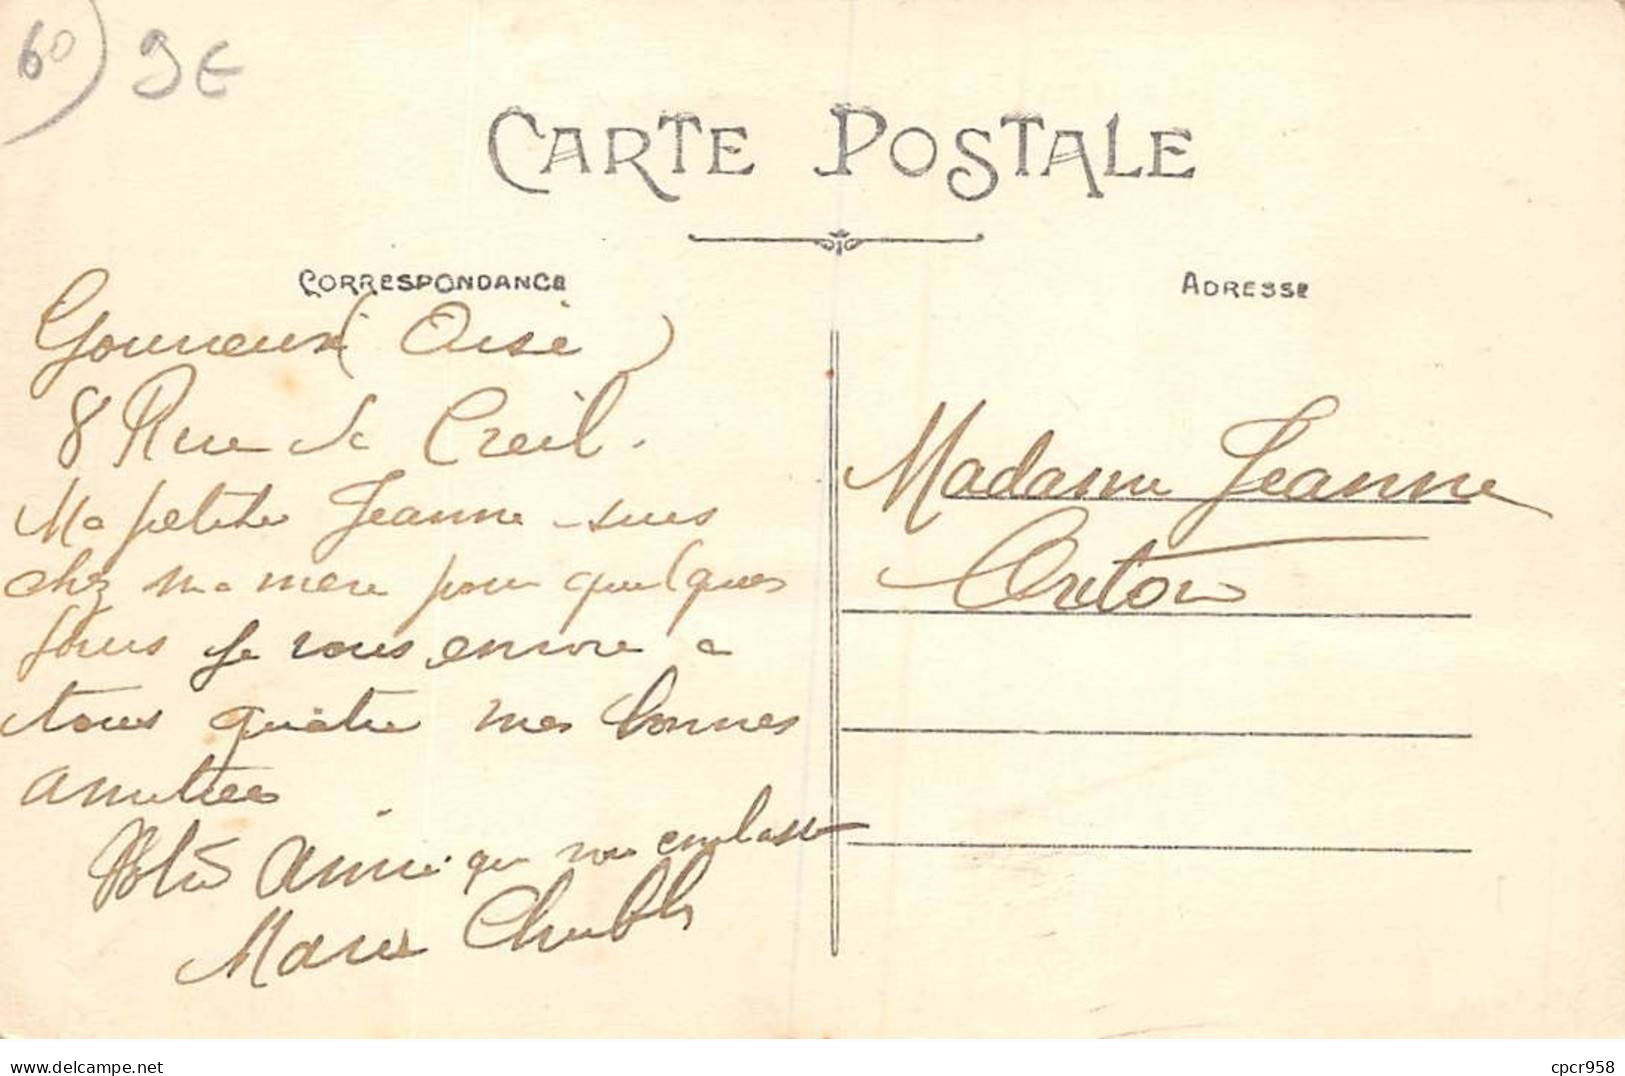 60 9€
CARTE POSTALE
CORRESPONDANCE
ADRESSE
Gouvieux (Oise)
8 Rue de Creil.
Ma petite Jeanne suis
chez ma mere pour quelques
jours je vous envoie a
tous quatre mes bonnes
amitiees
Votre Amie qui vous embrasse
Marie
Madame Jeanne
www.delcampe.net
cpcr958